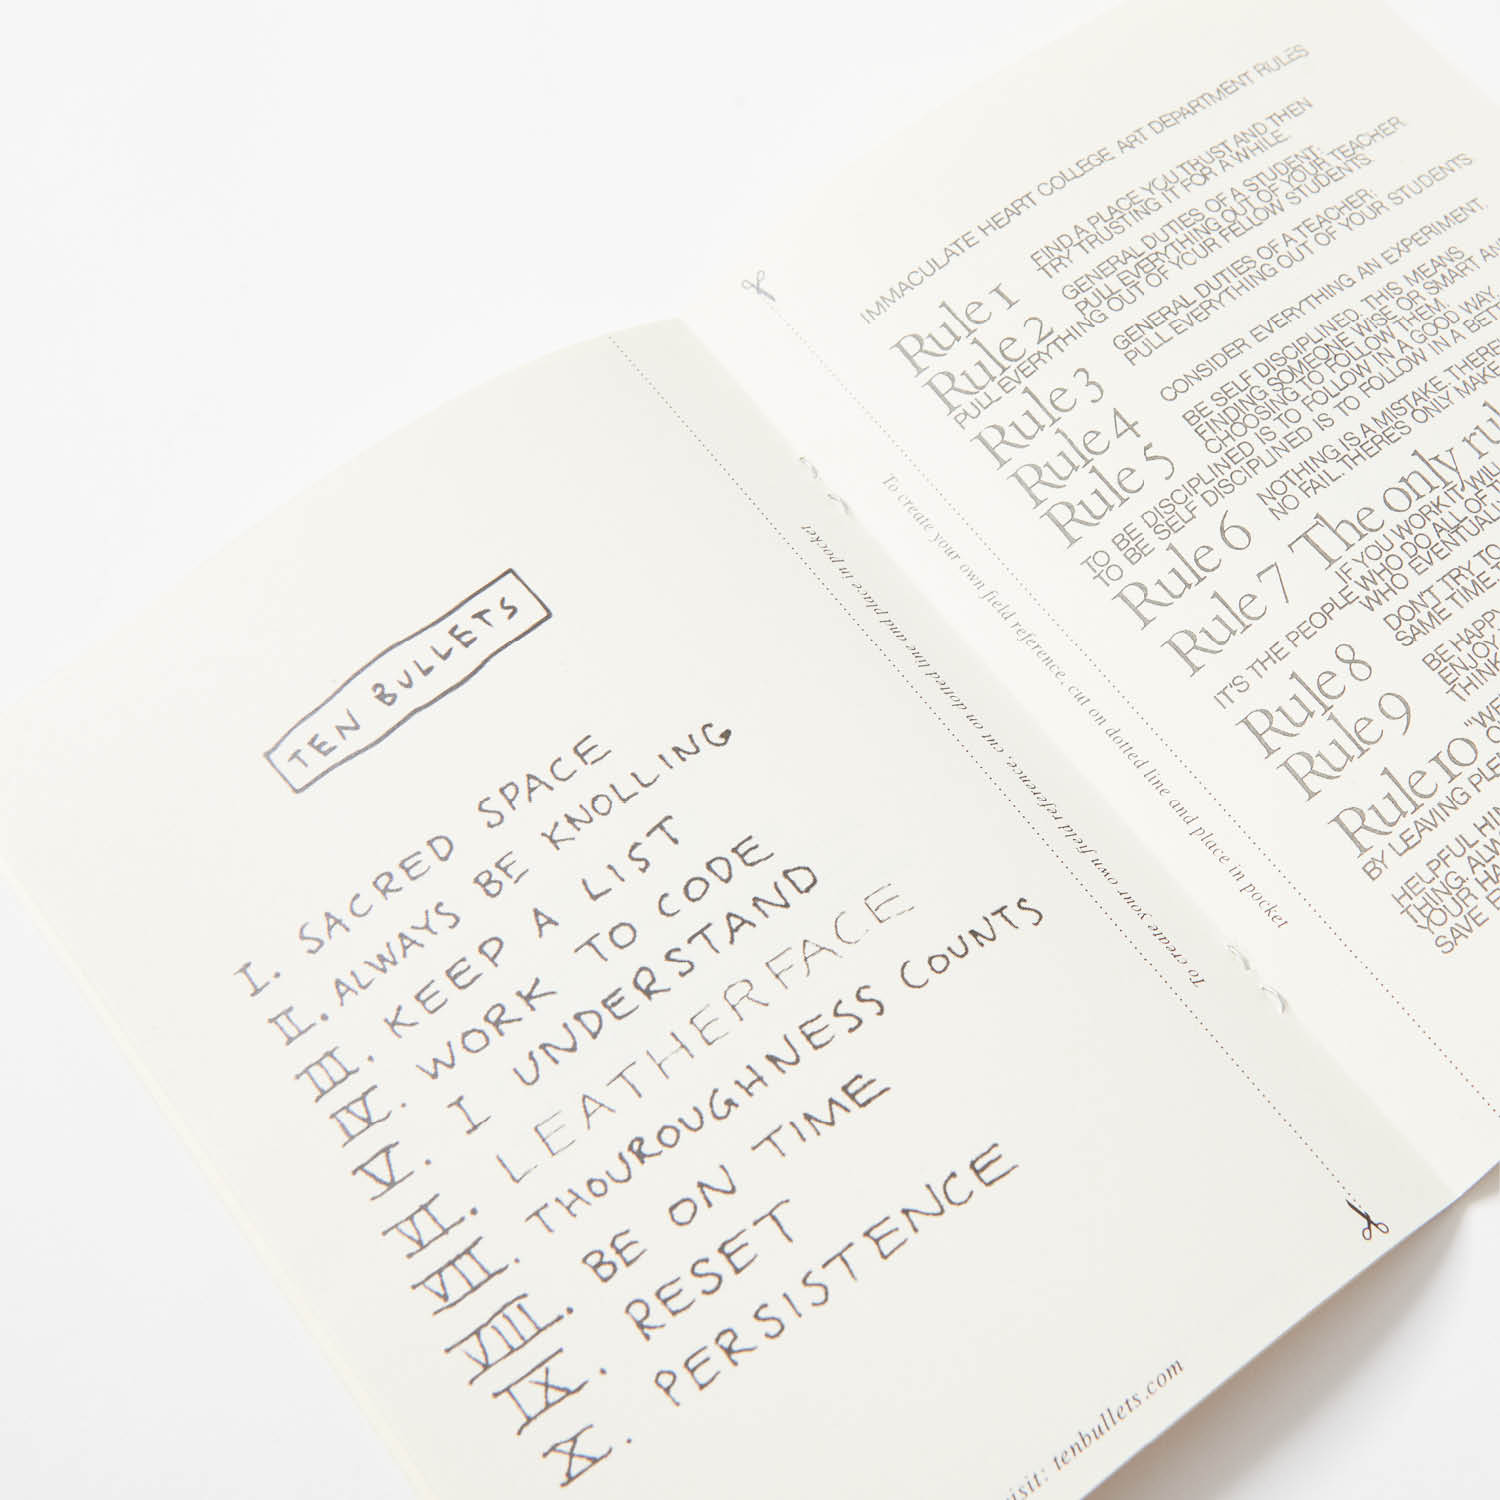 TEN BULLETS
I. SACRED SPACE
II. ALWAYS BE KNOLLING
III. KEEP A LIST
IV. WORK TO CODE
V. I UNDERSTAND
VI. LEATHERFACE
VII. THOUROUGHNESS COUNTS
VIII. BE ON TIME
IX. RESET
X. PERSISTENCE
visit: tenbullets.com
To create your own field reference, cut on dotted line and place in pocket
To create your own field reference, cut on dotted line and place in pocket
IMMACULATE HEART COLLEGE ART DEPARTMENT RULES
Rule 1
FIND A PLACE YOU TRUST AND THEN
TRY TRUSTING IT FOR A WHILE.
Rule 2
GENERAL DUTIES OF A STUDENT:
PULL EVERYTHING OUT OF YOUR TEACHER.
PULL EVERYTHING OUT OF YOUR FELLOW STUDENTS.
Rule 3
GENERAL DUTIES OF A TEACHER:
PULL EVERYTHING OUT OF YOUR STUDENTS.
Rule 4
CONSIDER EVERYTHING AN EXPERIMENT.
Rule 5
BE SELF DISCIPLINED. THIS MEANS
FINDING SOMEONE WISE OR SMART AND
CHOOSING TO FOLLOW THEM.
TO BE DISCIPLINED IS TO FOLLOW IN A GOOD WAY.
TO BE SELF DISCIPLINED IS TO FOLLOW IN A BETT
Rule 6
NOTHING IS A MISTAKE. THERE
NO FAIL. THERE'S ONLY MAKE
Rule 7 The only ru
IF YOU WORK IT WILL
IT'S THE PEOPLE WHO DO ALL OF T
WHO EVENTUALL
Rule 8
DON'T TRY TO
SAME TIME T
Rule 9
BE HAPPY
ENJOY
THINK
Rule 10
"WE'
O
BY LEAVING PLE
HELPFUL HIN
THING. ALW
YOUR HA
SAVE E